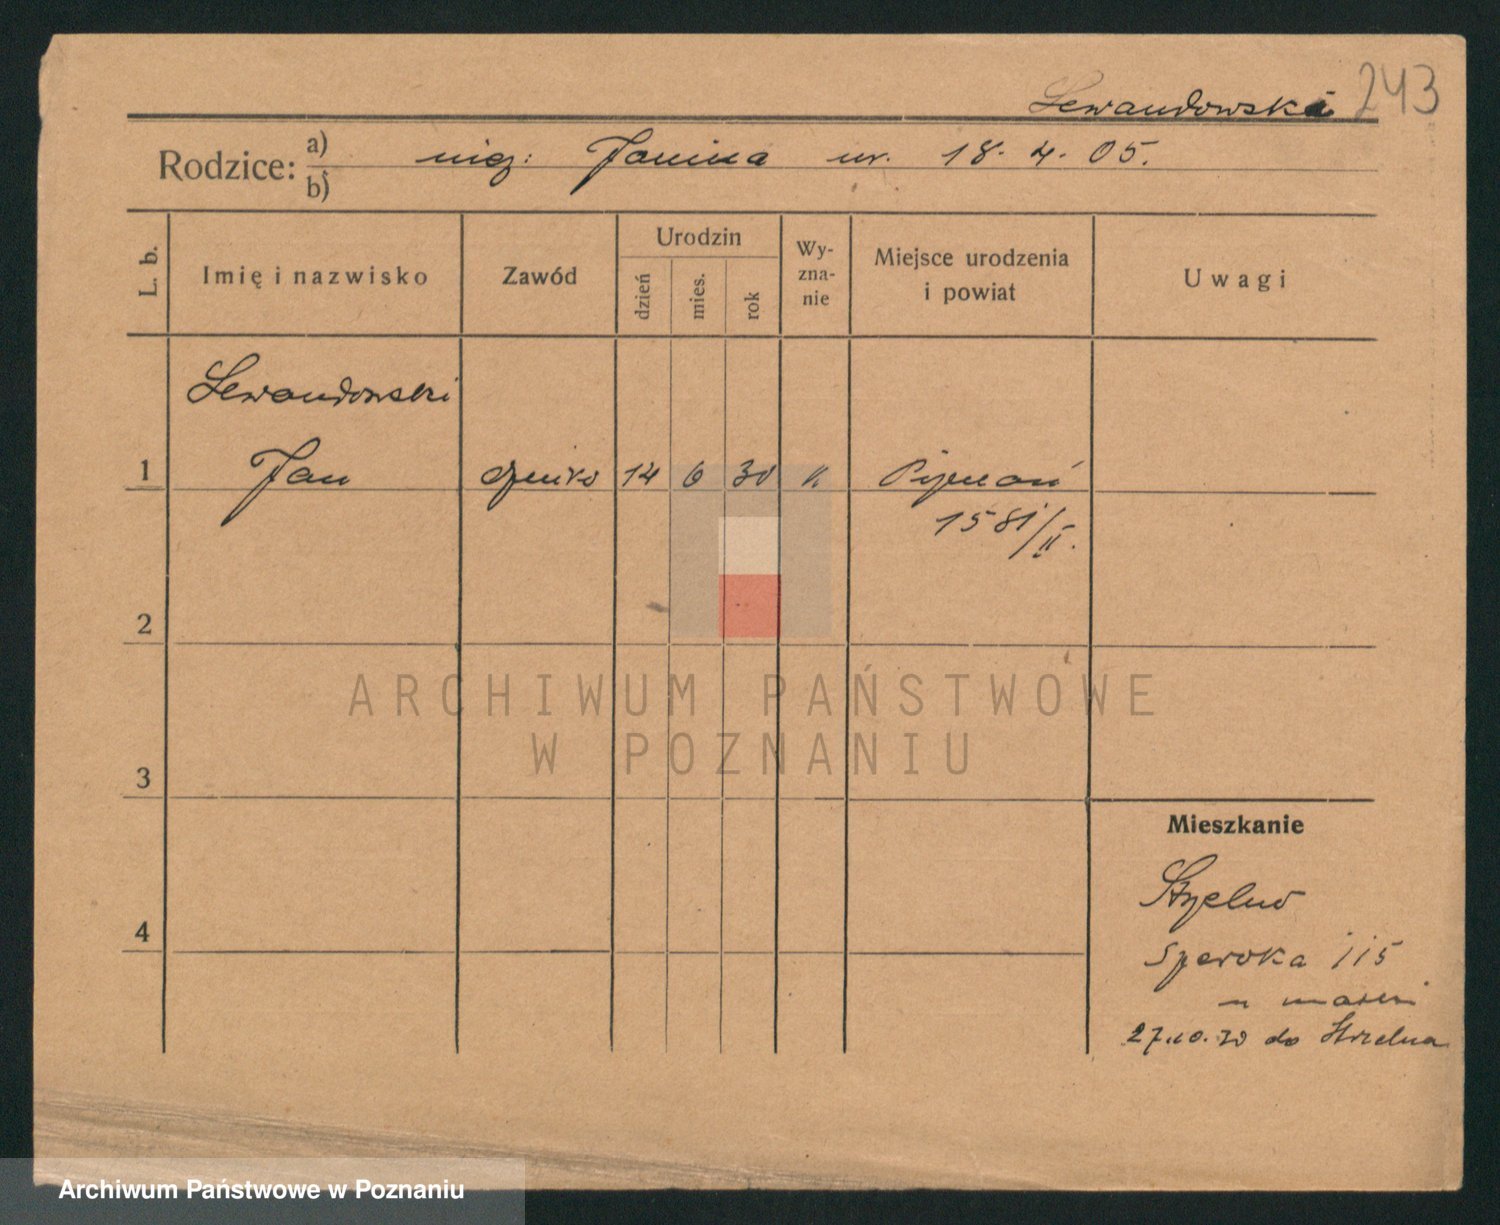 243
Lewandowska
Rodzice: a) niez: Janina ur. 18. 4. 05.
b)
L. b.
Imię i nazwisko
Zawód
Urodzin
dzień
mies.
rok
Wy-
zna-
nie
Miejsce urodzenia
i powiat
Uwagi
Lewandowski
1 Jan 14 6 30 k
1581/II.
2
3
4
Mieszkanie
Strzelno
115
u matki
27.10.30 do Strzelna
ARCHIWUM PAŃSTWOWE
W POZNANIU
Archiwum Państwowe w Poznaniu